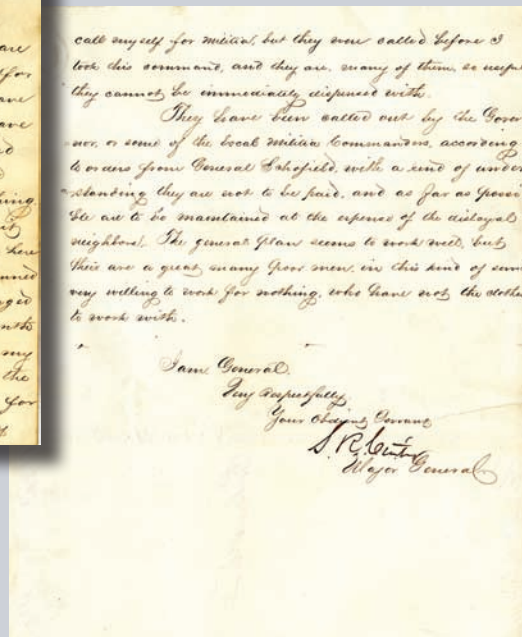 are
for
ave
ave
ed
thing.
it
here
nned
nged
onth
my
the
for
call myself for militia, but they were called before I
took this command, and they are, many of them, so usefu
they cannot be immediately dispensed with.
They have been called out by the Gover
nor, or some of the Local Militia Commanders, according
to orders from General Schofield, with a kind of under
standing they are not to be paid, and as far as possi
ble are to be maintained at the expense of the disloyal
neighbors. The general plan seems to work well, but
there are a great many poor men, in this kind of
very willing to work for nothing, who have not the clothe
to work with.
I am General.
Very respectfully
Your obedient Servant
S. R. Curtis
Major General